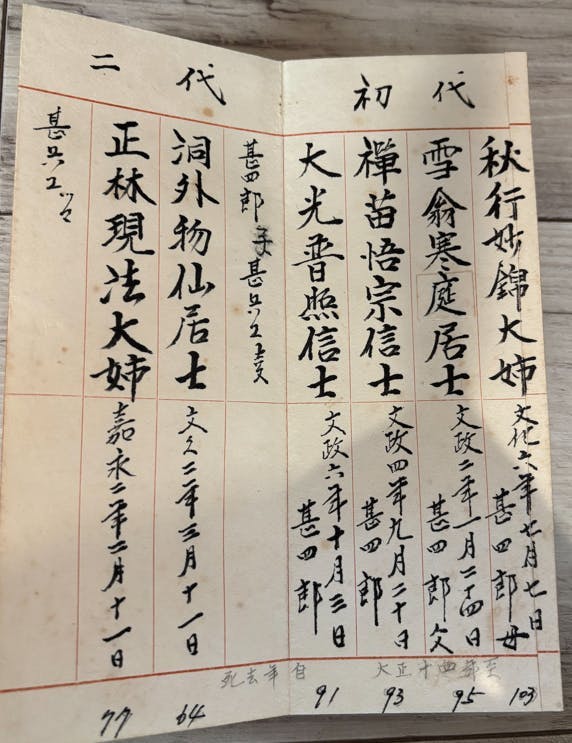 初代
秋行妙錦大姉
文化六年七月七日
甚四郎母
103
雪翁寒庭居士
文政二年一月二十四日
甚四郎父
95
禪苗悟宗信士
文政四年九月二十日
甚四郎
93
大光普照信士
文政六年十月三日
甚四郎
91
甚四郎子甚兵エ
二代
洞外物仙居士
文久二年三月十一日
64
正林現法大姉
嘉永二年二月十一日
77
甚兵エ
死去年自
大正十四年至